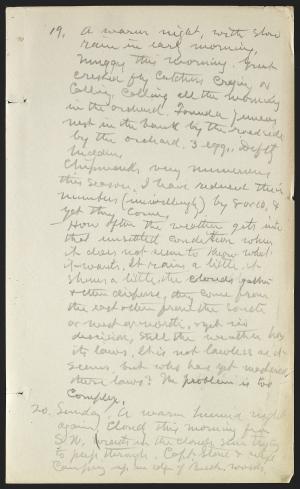 19. A warm night, with slow
rain in early morning,
muggy this morning. Great
crested fly catchers crying or
calling, calling all the morning
in the orchard. Found a junco's
nest in the bank by the roadside
by the orchard. 3 eggs. Deftly
hidden.
Chipmunks very numerous
this season, I have reduced their
number (unwillingly) by 8 or 10, &
yet they come,
How often the weather gets into
that unsettled condition when
it does not seem to know what
it wants. It rains a little, it
shines a little, the clouds gather
& then disperse, they come from
the east & then from the south
or west or north, yet no
decision, still the weather has
its laws. It is not lawless as it
seems, but who has yet mastered
these laws? The problem is too
complex,
20. Sunday, A warm humid night
again. Cloud this morning from
S.W. in the clouds, stars trying
to peep through. Capt. &
Camping up in edge of Beech woods